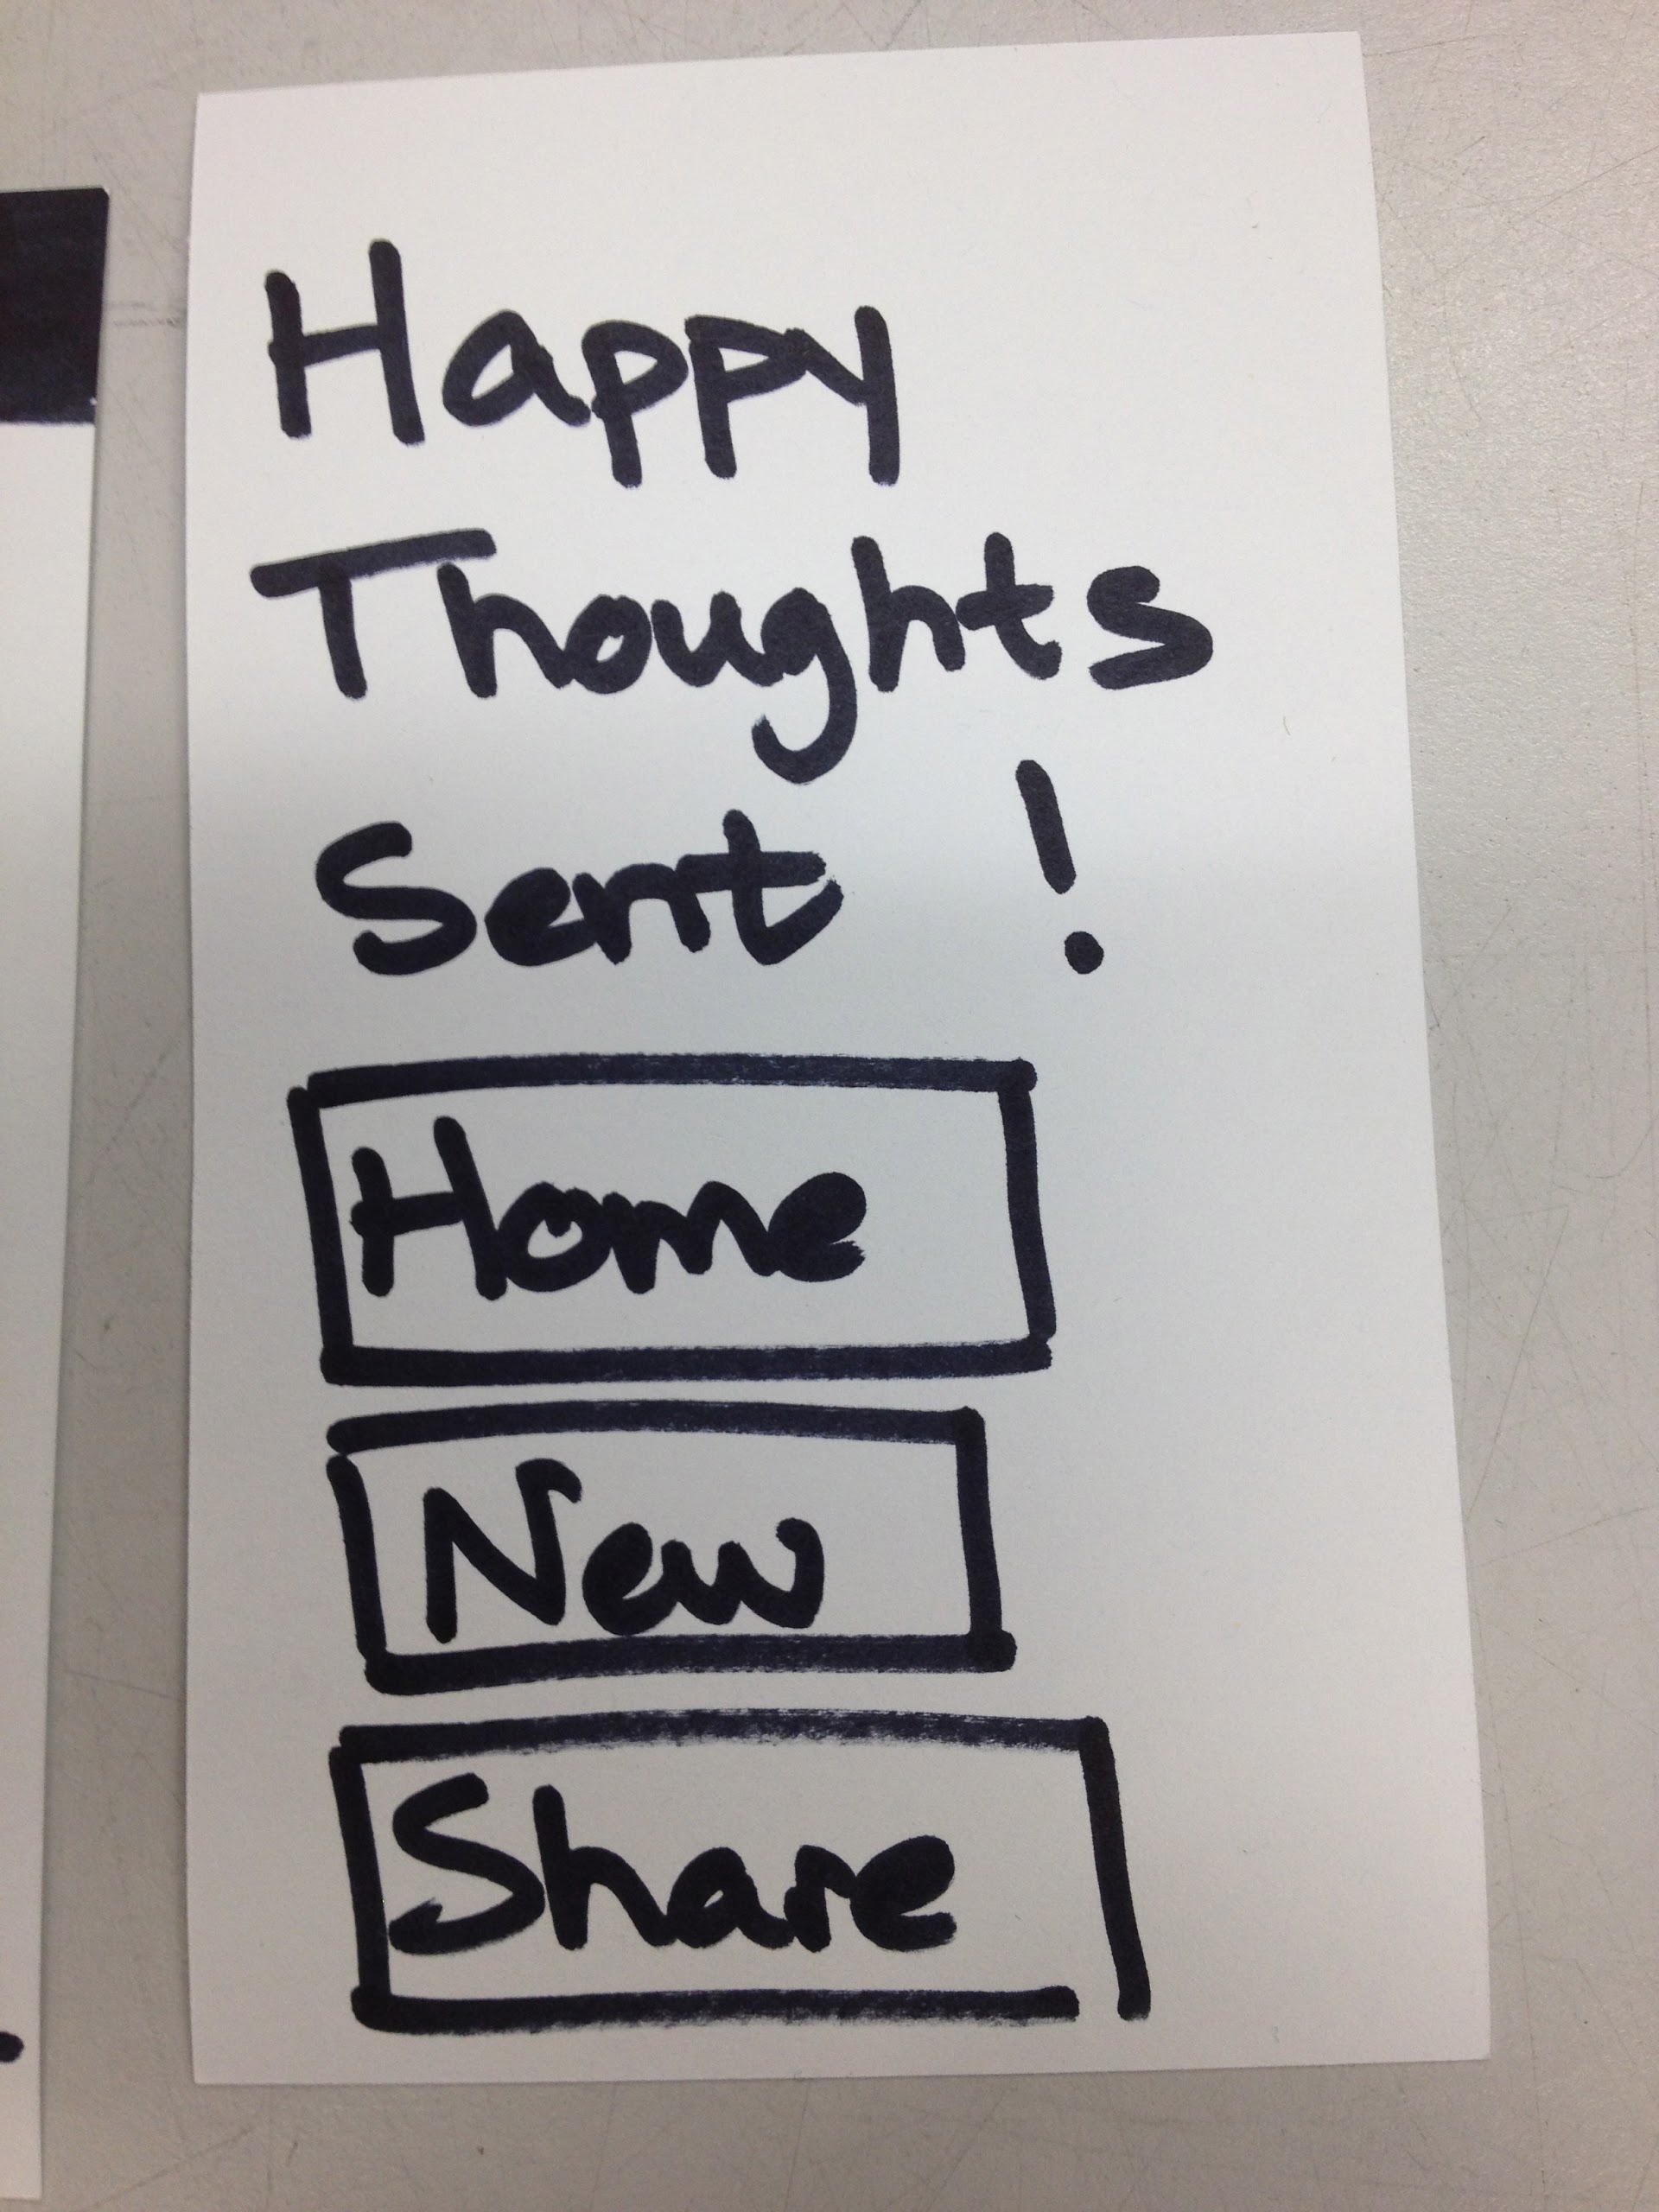 Happy
Thoughts
Sent !
Home
New
Share